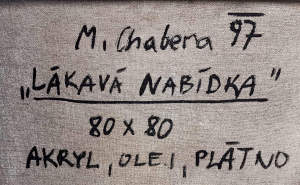 M. Chabera 97
„LÁKAVÁ NABÍDKA"
80 x 80
AKRYL, OLEJ, PLÁTNO